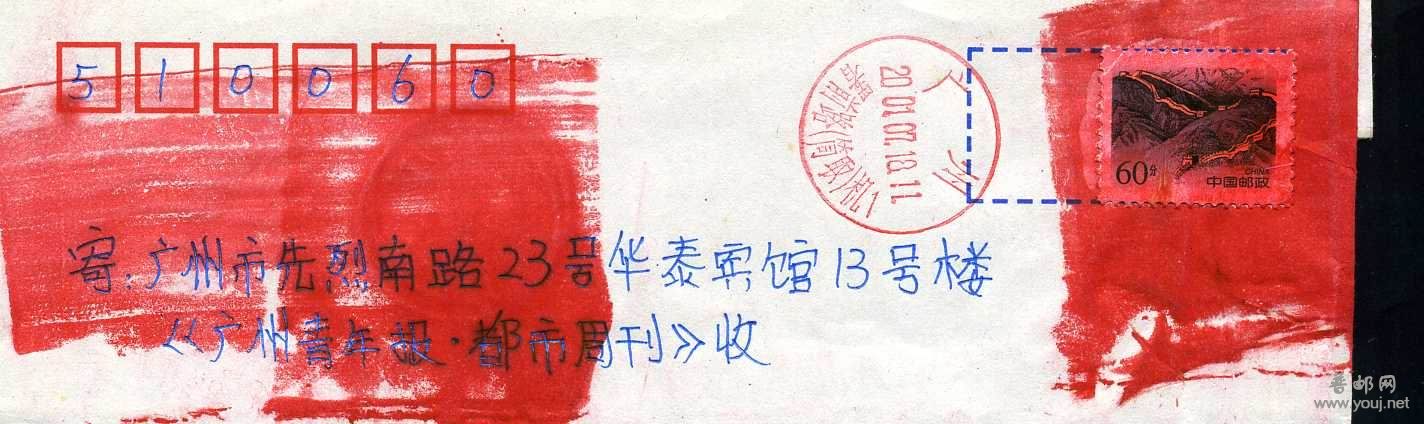 510060
广州
2001.07.18.11
60分
CHINA
中国邮政
寄:广州市先烈南路23号华泰宾馆13号楼
《广州青年报·都市周刊》收
普邮网
www.youj.net